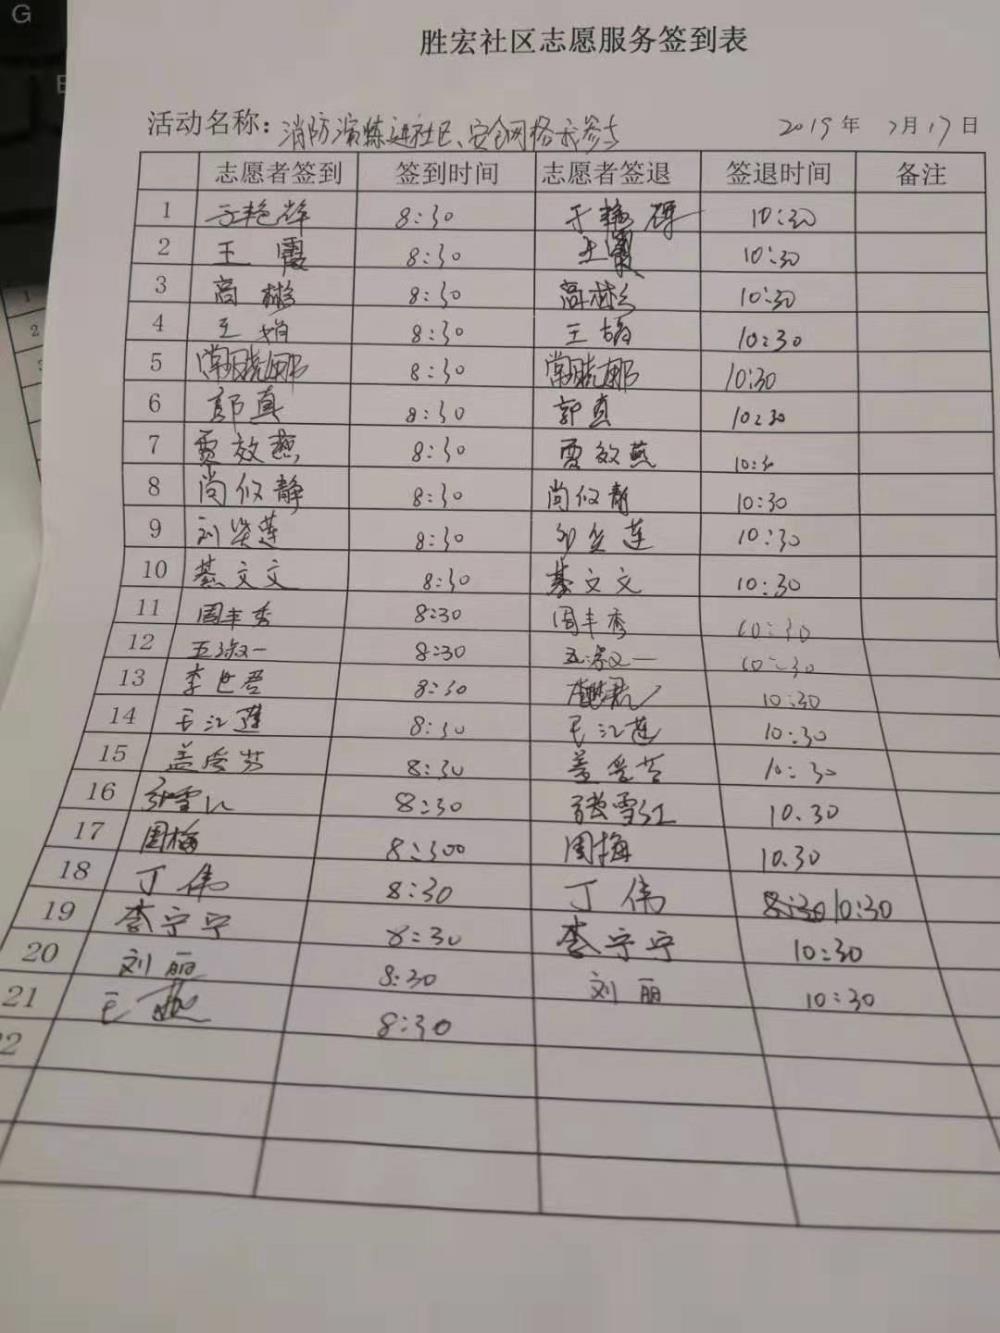 G
胜宏社区志愿服务签到表
活动名称：消防演练进社区、安全网格我参与 2019年 7月17日
志愿者签到 签到时间 志愿者签退 签退时间 备注
1 于艳辉 8:30 于艳辉 10:30
2 王霞 8:30 王霞 10:30
3 高彬 8:30 高彬 10:30
4 王娟 8:30 王娟 10:30
5 常晓娜 8:30 常晓娜 10:30
6 郭真 8:30 郭真 10:30
7 贾效燕 8:30 贾效燕 10:30
8 尚似静 8:30 尚似静 10:30
9 刘 莲 8:30 莲 10:30
10 綦文文 8:30 綦文文 10:30
11 周丰秀 8:30 周丰秀 10:30
12 8:30 10:30
13 李世君 8:30 10:30
14 王江莲 8:30 王江莲 10:30
15 盖秀芳 8:30 盖 10:30
16 张雪红 8:30 张雪红 10.30
17 周梅 8:300 周梅 10.30
18 丁伟 8:30 丁伟 8:30 10:30
19 李宁宁 8:30 李宁宁 10:30
20 刘丽 8:30 刘丽 10:30
21 王 8:30
2
1
2